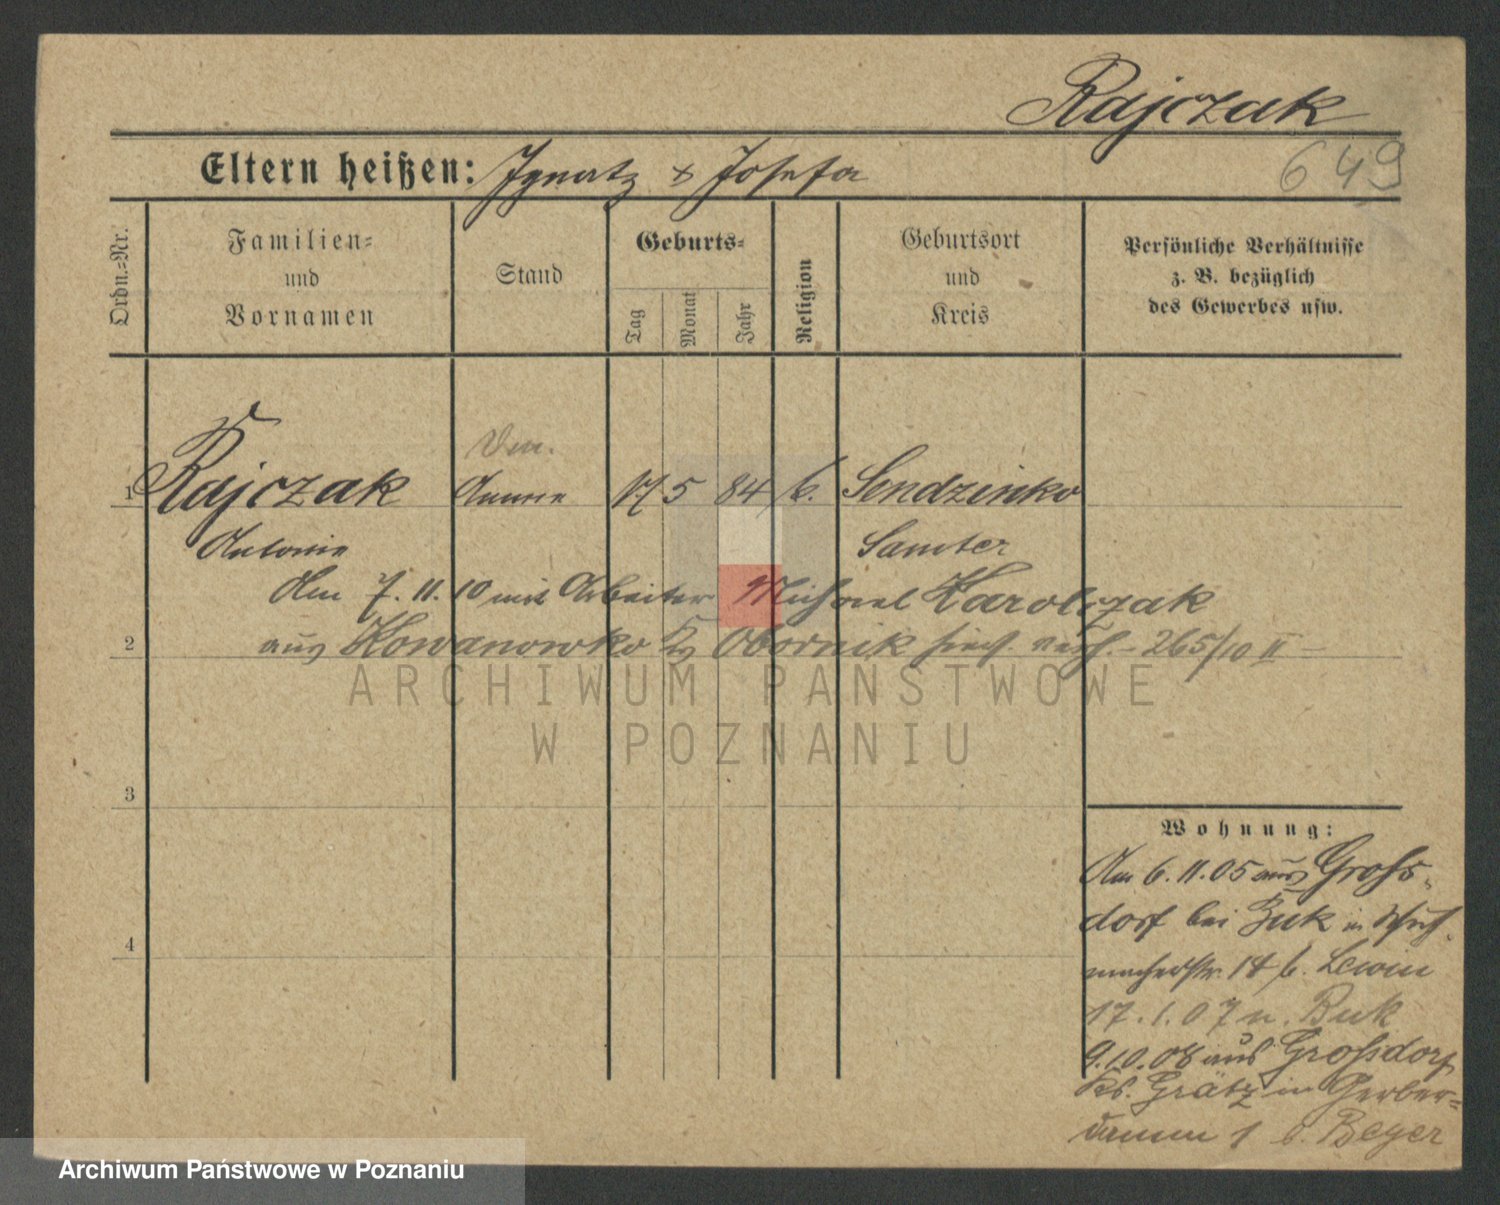 Rajczak
649
Eltern heißen: Ignatz & Josefa
Ordn.=Nr.
Familien=
und
Vornamen
Stand
Geburts=
Tag
Monat
Jahr
Religion
Geburtsort
und
Kreis
Persönliche Verhältnisse
z. B. bezüglich
des Gewerbes usw.
1 Rajczak Amme 17 5 84 k. Sendzinko
Antonie Samter
Am 7.11.10 mit Arbeiter Michael Karolczak
2 aus Kowanowko Ks Obornik 265/10 II
ARCHIWUM PAŃSTWOWE
W POZNANIU
3
4
Wohnung:
Am 6.11.05 aus Grohs-
dorf bei Buk in Schuh-
macherstr. 14 b. Lewin
17.1.07 n. Buk
9.10.08 aus Großdorf
Ks. Grätz in Gerber=
damm 1 b. Beyer
Archiwum Państwowe w Poznaniu